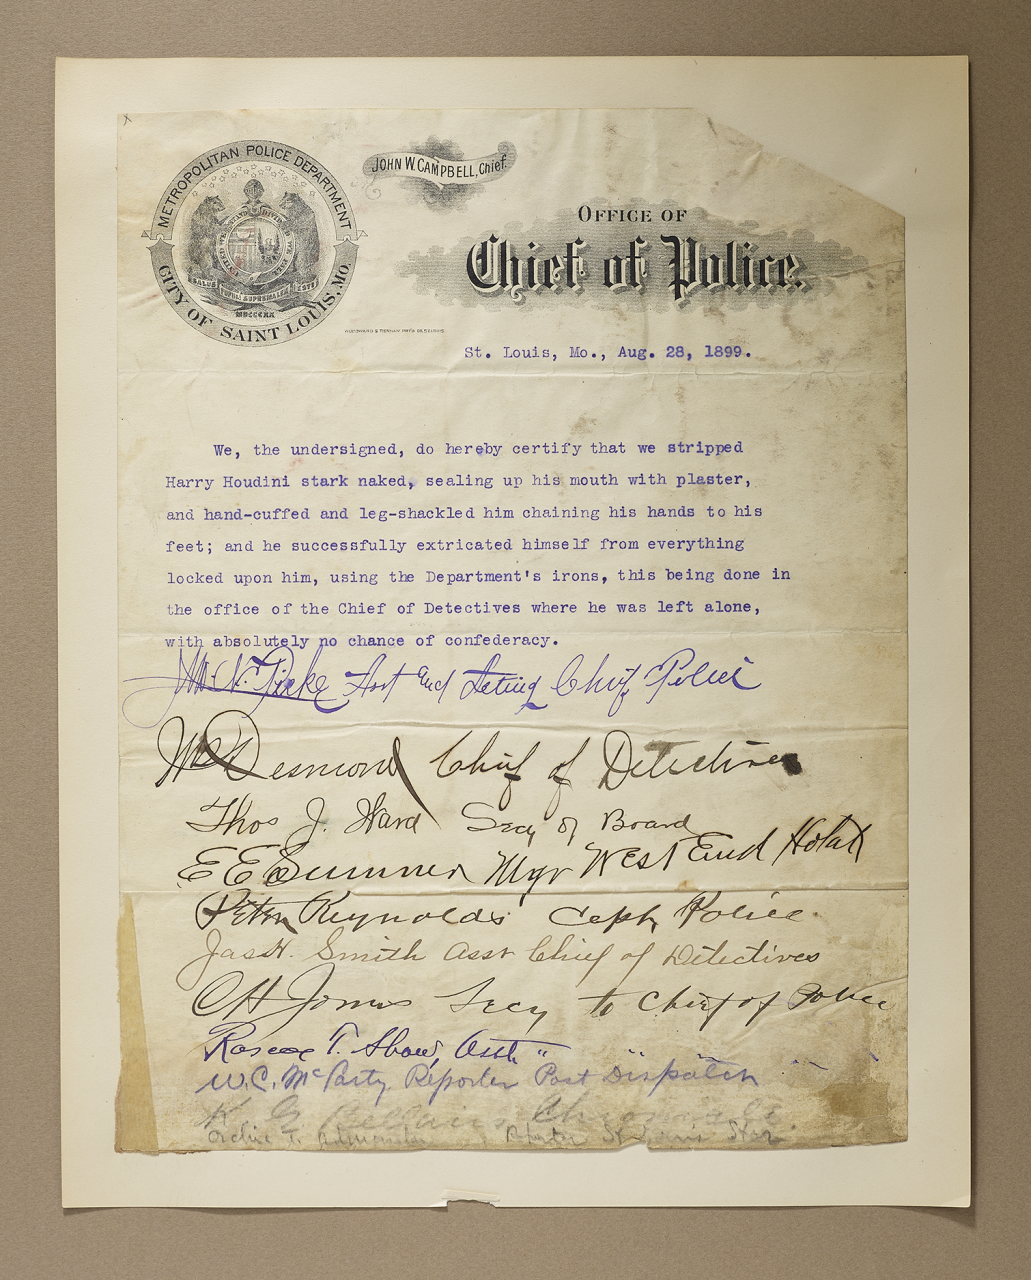 METROPOLITAN POLICE DEPARTMENT
CITY OF SAINT LOUIS, MO.
SALUS POPULI SUPREMA LEX ESTO
MDCCCXX
JOHN W. CAMPBELL, Chief.
OFFICE OF
Chief of Police.
St. Louis, Mo., Aug. 28, 1899.
We, the undersigned, do hereby certify that we stripped
Harry Houdini stark naked, sealing up his mouth with plaster,
and hand-cuffed and leg-shackled him chaining his hands to his
feet; and he successfully extricated himself from everything
locked upon him, using the Department's irons, this being done in
the office of the Chief of Detectives where he was left alone,
with absolutely no chance of confederacy.
Acting Chief Police
Wm Desmond Chief of Detectives
Thos J. Ward Secy of Board
E E Sumner Mgr West End Hotel
Peter Reynolds Police
Jas H. Smith Asst Chief of Detectives
Secy to Chief of Police
Roscoe T. Asst " " " "
W.C. McCarty Reporter Post Dispatch
Reporter St Louis Star